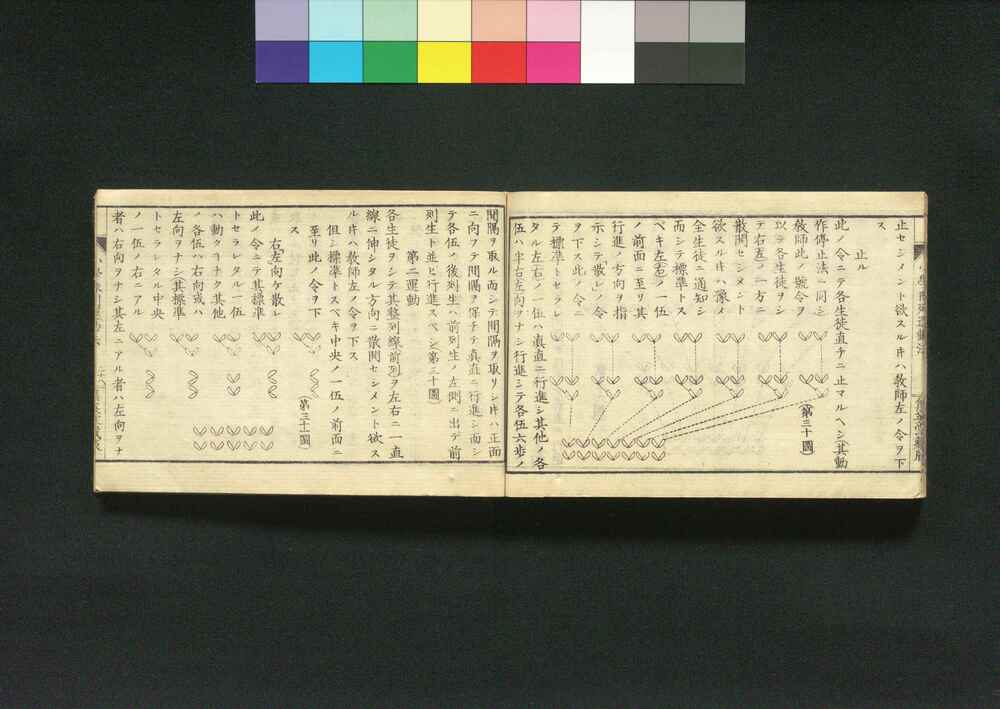 止セシメント欲スル𪜈ハ教師左ノ令ヲ下
ス
止ル
此ノ令ニテ各生徒直チニ止マルヘシ其動
作停止法ニ同シ
教師此ノ號令ヲ
以テ各生徒ヲシ
テ右(左)ノ一方ニ
散開セシメント
欲スル𪜈ハ豫メ
全生徒ニ通知シ
而シテ標準トス
ベキ左(右)ノ一伍
ノ前面ニ至リ其
行進ノ方向ヲ指
示シテ「散レ」ノ令
ヲ下ス此ノ令ニ
テ標準トセラレ
タル左右ノ一伍ハ直直ニ行進シ其他ノ各
伍ハ半右左向ヲナシ行進シテ各伍六歩ノ
(第三十圖)
間隔ヲ取ル而シテ間隔ヲ取リシ𪜈ハ正面
ニ向フテ間隔ヲ保チテ真直ニ行進シ而シ
テ各伍ノ後列生ハ前列生ノ左側ニ出テ前
列生ト並ヒ行進スベシ(第三十圖)
第二運動
各生徒ヲシテ其整列線前列ヲ左右ニ一直
線ニ伸シタル方向ニ散開セシメント欲ス
ル𪜈ハ教師左ノ令ヲ下ス
但シ標準トスベキ中央ノ一伍ノ前面ニ
至リ此ノ令ヲ下
ス
右左向ケ散レ
此ノ令ニテ其標準
トセラレタル一伍
ハ動クヿナク其他
ノ各伍ハ右向或ハ
左向ヲナシ(其標準
トセラレタル中央
ノ一伍ノ右ニアル
者ハ右向ヲナシ其左ニアル者ハ左向ヲナ
(第三十一圖)